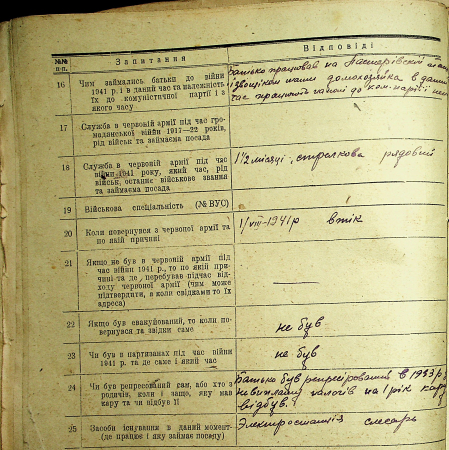 №№ п.п. Запитання Відповіді
16 Чим займались батьки до війни
1941 р. і в даний час та належність
їх до комуністичної партії і з
якого часу
батько працював на
домохозяйка в даний
час
17 Служба в червоній армії під час гро-
мадянської війни 1917—22 років,
рід військ та займаєма посада
18 Служба в червоній армії під час
війни 1941 року, який час, рід
військ, останнє військове звання
та займаєма посада
1½ місяці, стрелкова рядовий
19 Військова спеціальність (№ ВУС)
20 Коли повернувся з червоної армії та
по якій причині
1/VIII-1941р втік
21 Якщо не був в червоній армії під
час війни 1941 р., то по якій при-
чині та де, перебував підчас від-
ходу червоної армії (чим може
підтвердити, в коли свідками то їх
адреса)
22 Якщо був евакуйований, то коли по-
вернувся та звідки саме
не був
23 Чи був в партизанах під час війни
1941 р. та де саме і який час
не був
24 Чи був репресований сам, або хто з
родичів, коли і защо, яку мав
кару та чи відбув її
Батько був репресірований в 1933 р
налогів на 1 рік кару
відбув.
25 Засоби існування в даний момент
(де працює і яку займає посаду)
Электростанція слесарь